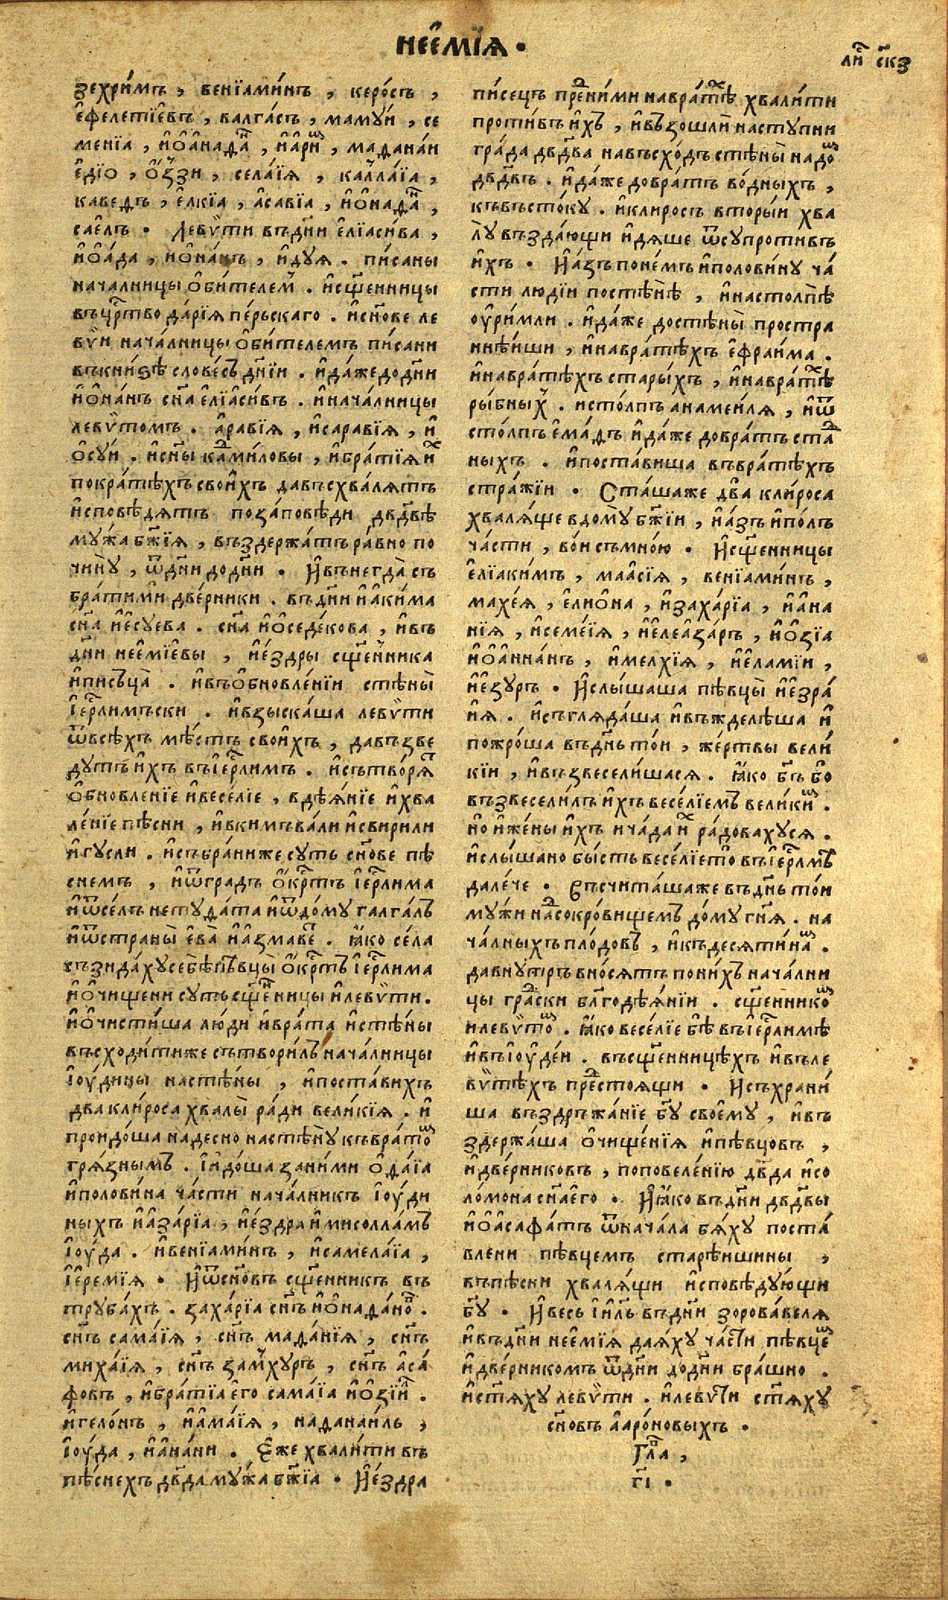 неемїѧ •
лиⷭ҇ скз
зехрим̾ъ , венїамиⷩ҇нъ , керосъ ,
ефелетїевъ , валгасъ , мамуи , се
менїа , иѻанадаⷨ , иариⷨ , маданаи
едїо , ѻузи , селаїѧ , каллаїа ,
каведъ , елкїа , асавїа , иѻнадаⷩ ,
саелъ • Левѵти въдн҃и елїасива ,
иѻада , иѻнанъ , идуѧ . писаны
началницы ѻбителеⷨ . исщ҃енницы
въцрⷭ҇тво дарїѧ перьскаго . исн҃ове ле
вѵи началницы ѻбителемъ писани
въкнизѣ словесъ дн҃їи . идажедодн҃и
иѻнанъ сн҃а елїасивъ . иначалницы
левѵтомъ . аравїѧ , исаравїѧ , и
ѻсуи . исн҃ы каⷣмиловы , ибратїѧ иⷯ
пократѣхъ своихъ давъсхвалѧтъ
исповѣдѧтъ позаповѣди дв҃двѣ
мужа бж҃їѧ , въздержатъ равно по
чину , ѿдн҃и додн҃и • Ивънегда съ
братими дверники . въдн҃и иакима
сн҃а иесуева . сн҃а иѻседекова , ивъ
дн҃и неемїевы , иездры сщ҃енника
иписъца . ивъѻбновленїи стѣны
їерⷭ҇лимъски . ивзыскаша левѵти
ѿвсѣхъ мѣстъ своихъ , давъзве
дутъ ихъ въїерⷭ҇лимъ . исътворѧⷮ
ѻбновленїе ивеселїе , вдѣѧнїе ихва
ленїе пѣсни , ивкимъвали исвирили
игусли . исъбраниже суть сн҃ове пѣ
снемъ , иѿградъ ѻкрⷭ҇тъ їерⷭ҇лима
иѿселъ нетудата иѿдому галгалъ
иѿстраны ева иазмавеⷮ . ꙗко села
възидахусебѣпѣвцы ѻкрⷭ҇тъ їерⷭ҇лима
иѻчищени суть сщ҃еⷩницы илевѵти .
иѻчистиша люди иврата истѣны
въсходитиже сътворилъ началницы
їоудины настѣны , ипоставихъ
два клироса хвалы ради великїѧ . и
проидоша надесно настѣну къвратоⷨ
грѧзнымъ . їидоша заними ѻдаїа
иполовина части началникъ їоуди
ныхъ иазарїа , иездра имисолламъ
їоуда . ивенїаминъ , исамелаїа ,
їеремїѧ • Иѿсн҃овъ сщ҃енникъ въ
трубахъ . захарїа сн҃ъ иѻнаданоⷡ .
сн҃ъ самаїѧ , сн҃ъ маданїѧ , сн҃ъ
михаїѧ , сн҃ъ замхуръ , сн҃ъ аса
фовъ , ибратїа его самаїа иѻзїиⷧ .
игелонъ , иамаїѧ , наданаиль ,
їоуда , ианани . Еже хвалити въ
пѣснехъ дв҃да мужа бж҃їа • Иездра
писецъ преⷣними навратѣⷯ хвалити
противъ ихъ , ивъзошли наступни
града дв҃два навъсходъ стѣны надоⷨ
дв҃двъ . идаже добратъ водныхъ ,
къвъстоку . иклиросъ вторыи хва
лу въздающи идѧше ѿсупротивъ
ихъ • Иазъ понемъ иполовину ча
сти людїи постѣнѣ , инастолпѣ
оуримли . идаже достѣны простра
ннѣиши , инавратѣхъ ефраима .
инавратѣхъ старыхъ , инавратѣⷯ
рыбныⷯ . истолпъ анамеилѧ , иѿ
столпъ емадъ идаже добратъ стаⷣ
ныхъ . ипоставиша въвратѣхъ
стражїи • Сташаже два клироса
хвалѧще вдому бж҃їи , иазъ иполъ
части , вои съмною • Исщ҃енницы
елїакимъ , маасїѧ , венїаминъ ,
махеѧ , елиѻна , изахарїа , иана
нїѧ , исемеїѧ , иелеазаръ , иѻзїа
иѻаннанъ , имелхїѧ , иеламїи ,
иезуръ • Ислышаша пѣвцы иезра
иѧ . исъглѧдаша ивъжделѣша и
пожроша въдн҃ь тои , жертвы вели
кїи , ивъзвеселишасѧ . ꙗко бг҃ъ бо
възвеселилъ ихъ веселїемъ великиⷨ .
но ижены ихъ ичада иⷯ радовахусѧ .
ислышано бысть веселїето въїерⷭ҇лмъ
далече • Съсчиташаже въдн҃ь тои
мужи наⷣсокровищемъ дому гн҃ѧ . на
чалныхъ плодовъ , икъдесѧтинаⷨ .
давнутръ вносѧтъ понихъ начални
цы граⷣски благодѣѧнїи . сщ҃енникоⷨ
илевѵтоⷨ . ꙗко веселїе бѣ въїерⷭ҇лимѣ
ивъїоудеи . въсщ҃енницѣхъ ивъле
вѵтѣхъ преⷣстоѧщи • Исъхрани
ша въздръжанїе бг҃у своему , ивъ
здержаша ѻчищенїѧ ипѣвцовъ ,
идверниковъ , поповеленїю дв҃да исо
ломона сн҃аего • Иꙗко въдн҃и дв҃двы
иѻасафатъ ѿначала бѧху поста
влени пѣвцемъ старѣишины ,
въпѣсни хвалѧщи исповѣдующи
бг҃у • Ивесь їиⷭ҇ль въдн҃и зоровавелѧ
ивъдн҃и неемїѧ даѧху части пѣвцеⷨ
идверникомъ ѿдн҃и додн҃и брашно .
истѧху левѵти . илевѵти ст҃ѧху
сн҃овъ аароновыхъ .
Глⷡ҇а ,
г҃і .